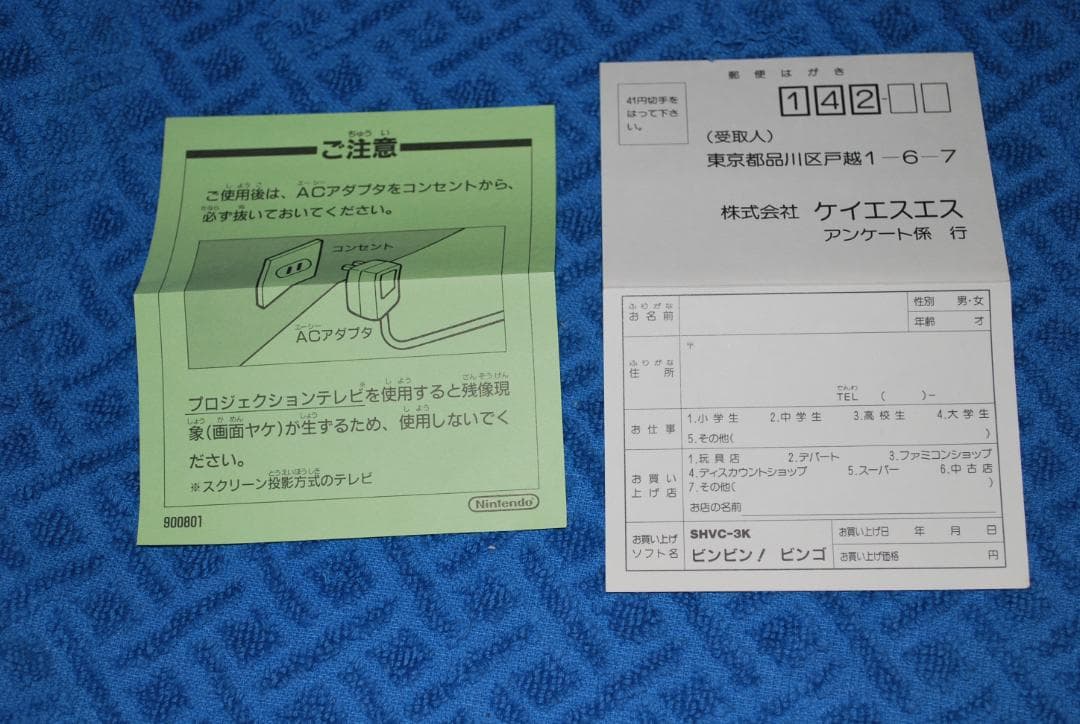 ちゅうい
ご注意
しようご エーシー
ご使用後は、ACアダプタをコンセントから、
かなら ぬ
必ず抜いておいてください。
コンセント
エーシー
ACアダプタ
※ しよう ざんぞうげん
プロジェクションテレビを使用すると残像現
しょう がめん しょう しよう
象(画面ヤケ)が生ずるため、使用しないでく
ださい。
とうえいほうしき
※スクリーン投影方式のテレビ
Nintendo
900801
郵便はがき
41円切手を
はって下さ
い。
142-
(受取人)
東京都品川区戸越1-6-7
株式会社 ケイエスエス
アンケート係 行
ふりがな
お名前
性別 男・女
年齢 才
ふりがな
住所
〒
でんわ
TEL ( )-
お仕事
1.小学生 2.中学生 3.高校生 4.大学生
5.その他( )
お買い
上げ店
1.玩具店 2.デパート 3.ファミコンショップ
4.ディスカウントショップ 5.スーパー 6.中古店
7.その他( )
お店の名前
お買い上げ
ソフト名
SHVC-3K
ビンビン! ビンゴ
お買い上げ日 年 月 日
お買い上げ価格 円